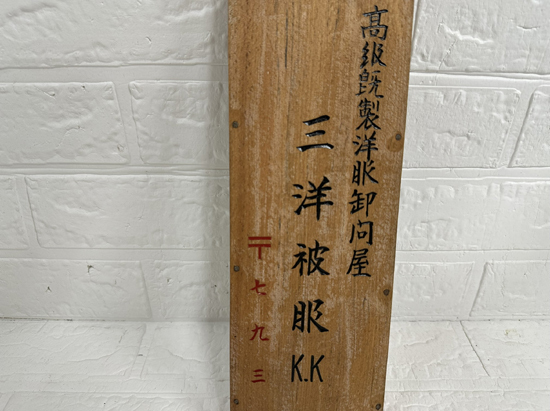 高級既製洋服卸問屋
三洋被服K.K
〒七九三